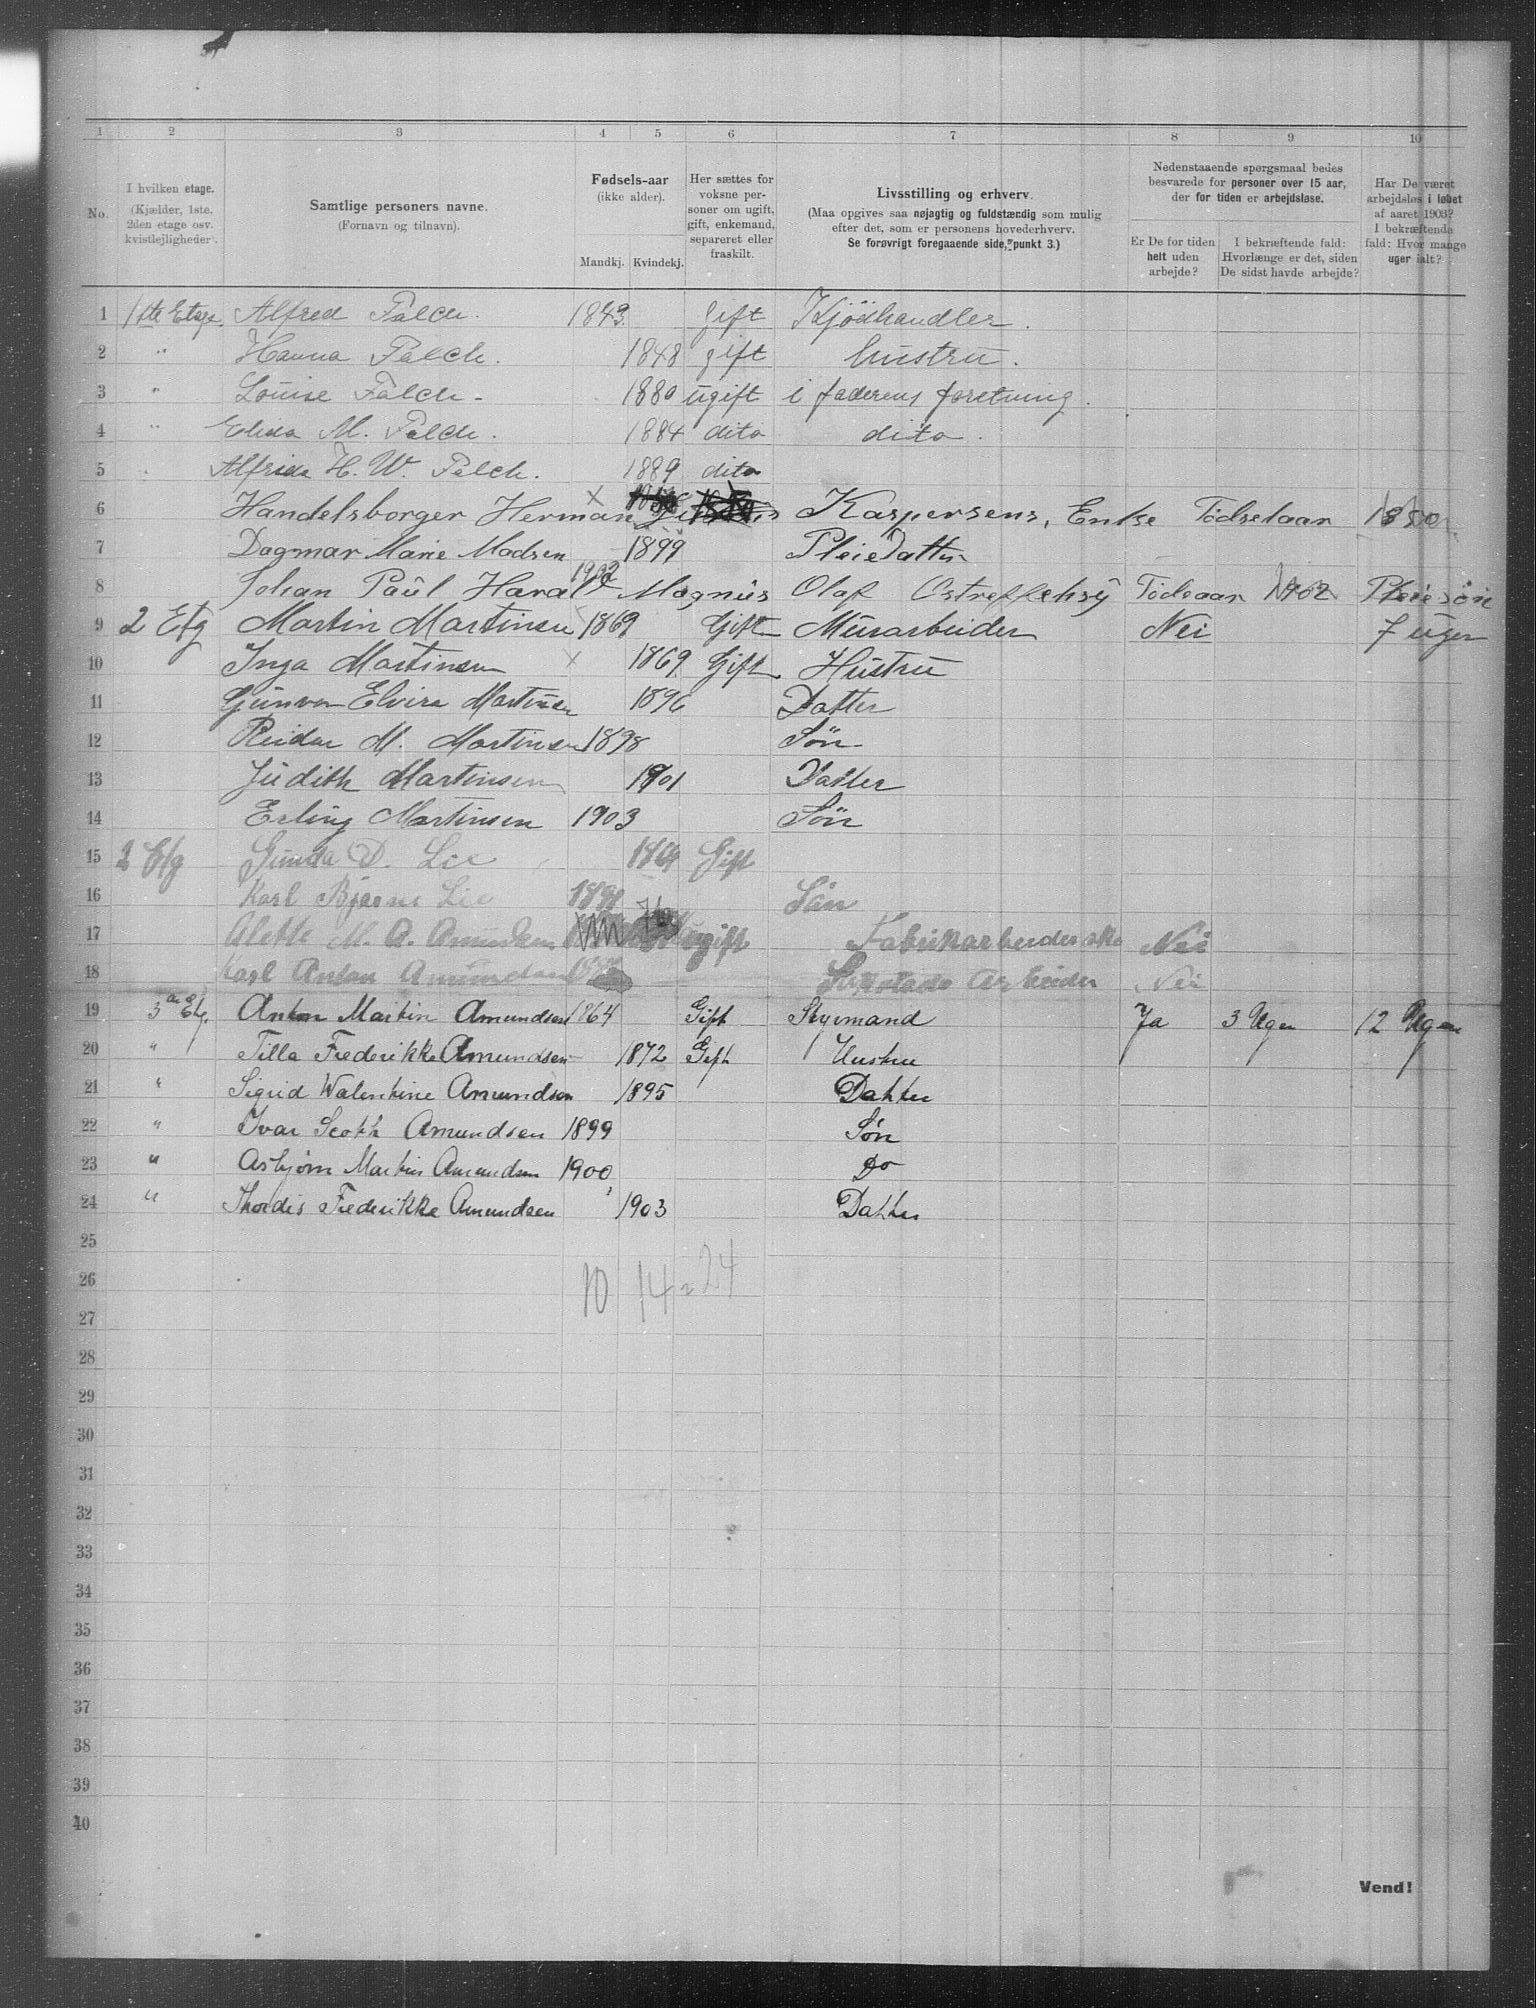 1 2 3 4 5 6 7 8 9 10
No.
I hvilken etage.
(Kjælder, 1ste,
2den etage osv.
kvistlejligheder).
Samtlige personers navne.
(Fornavn og tilnavn).
Fødsels-aar
(ikke alder).
Mandkj. Kvindekj.
Her sættes for
voksne per-
soner om ugift,
gift, enkemand,
separeret eller
fraskilt.
Livsstilling og erhverv.
(Maa opgives saa nøjagtig og fuldstændig som mulig
efter det, som er personens hovederhverv.
Se forøvrigt foregaaende side, punkt 3.)
Nedenstaaende spørgsmaal bedes
besvarede for personer over 15 aar,
der for tiden er arbejdsløse.
Er De for tiden
helt uden
arbejde?
I bekræftende fald:
Hvorlænge er det, siden
De sidst havde arbejde?
Har De været
arbejdsløs i løbet
af aaret 1903?
I bekræftende
fald: Hvor mange
uger ialt?
1 1ste Etage Alfred Falch. 1843 gift Kjödhandler.
2 " Hanna Falch. 1848 gift hustru.
3 " Louise Falch. 1880 ugift i faderens foretning.
4 " M. Falch. 1884 dito dito.
5 Alfrida H. W. Falch. 1889 dito
6 Handelsborger Herman Kaspersens, Enke Födselaar 1850
7 Dagmar Marie Madsen 1899 PleieDatter
8 Johan Paul Harald 1902 Magnus Olaf Födeaar 1902 Pleiesön
9 2 Etg Martin Martinsen 1869 Gift Murarbeider Nei 7 uger
10 Inga Martinsen 1869 Gift Hustru
11 Gunvor Elvira Martinsen 1896 Datter
12 Reidar M. Martinsen 1898 Sön
13 Judith Martinsen 1901 Datter
14 Erling Martinsen 1903 Sön
15 2 Etg Gunda D. Lie Gift
16 Karl Bjarne Lie 1891 Sön
17 Alette M. A. Amundsen ugift Fabrikarbeiderske Nei
18 Karl Anton Amundsen Arbeider Nei
19 3die Etg. Anton Martin Amundsen 1864 Gift Styrmand Ja 3 Uger 12 Uger
20 " Tilla Frederikke Amundsen 1872 Gift Hustru
21 " Sigrid Walentine Amundsen 1895 Datter
22 " Ivar Scott Amundsen 1899 Søn
23 " Asbjørn Martin Amundsen 1900 Do
24 " Thordis Frederikke Amundsen 1903 Datter
25
26 10 14 = 24
27
28
29
30
31
32
33
34
35
36
37
38
39
40
Vend!